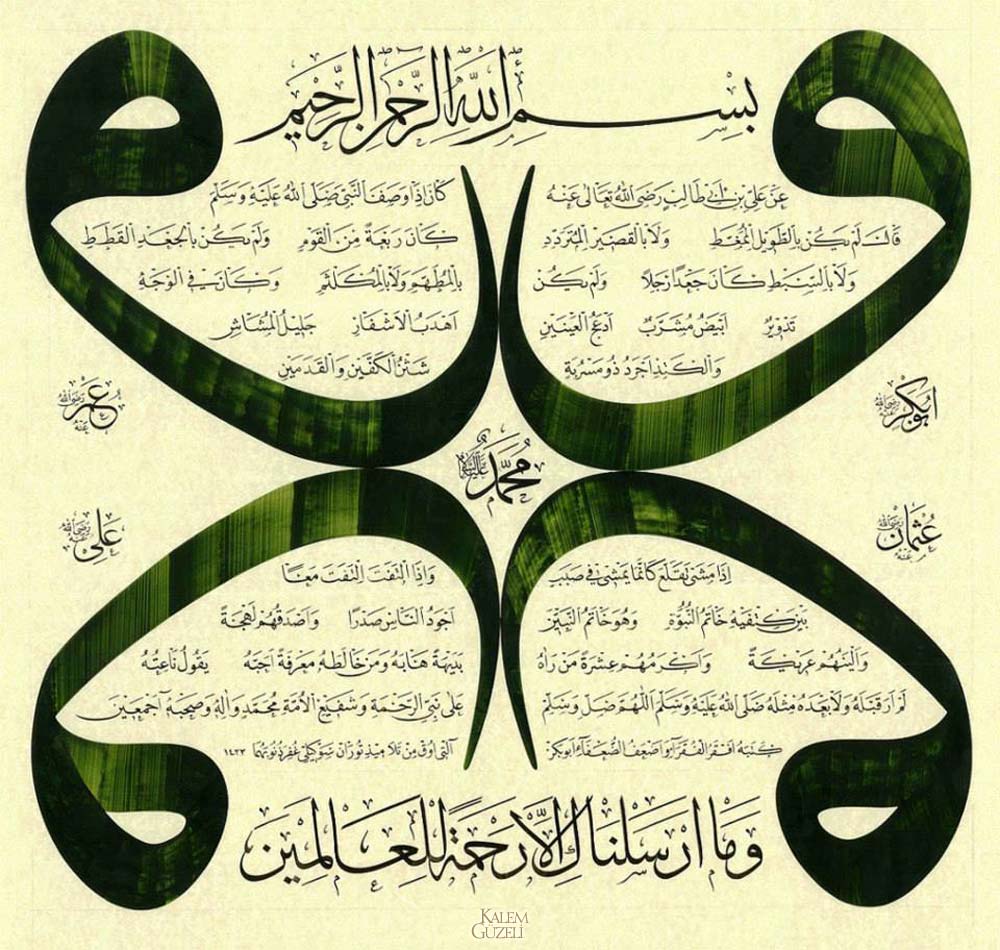 بِسْمِ اللهِ الرَّحْمٰنِ الرَّحِيمِ
عَنْ عَلِيِّ بْنِ أَبِي طَالِبٍ رَضِيَ اللهُ تَعَالَى عَنْهُ كَانَ إِذَا وَصَفَ النَّبِيَّ صَلَّى اللهُ عَلَيْهِ وَسَلَّمَ
قَالَ لَمْ يَكُنْ بِالطَّوِيلِ الْمُمَّغِطِ وَلَا بِالْقَصِيرِ الْمُتَرَدِّدِ كَانَ رَبْعَةً مِنَ الْقَوْمِ وَلَمْ يَكُنْ بِالْجَعْدِ الْقَطَطِ
وَلَا بِالسَّبِطِ كَانَ جَعْدًا رَجِلًا وَلَمْ يَكُنْ بِالْمُطَهَّمِ وَلَا بِالْمُكَلْثَمِ وَكَانَ فِي الْوَجْهِ
تَدْوِيرٌ أَبْيَضُ مُشْرَبٌ أَدْعَجُ الْعَيْنَيْنِ أَهْدَبُ الْأَشْفَارِ جَلِيلُ الْمُشَاشِ
وَالْكَتَدِ أَجْرَدُ ذُو مَسْرُبَةٍ شَثْنُ الْكَفَّيْنِ وَالْقَدَمَيْنِ
ابُو بَكْر رَضِيَ اللهُ عَنْهُ
عُمَر رَضِيَ اللهُ عَنْهُ
مُحَمَّد عَلَيْهِ السَّلَام
عُثْمَان رَضِيَ اللهُ عَنْهُ
عَلِي رَضِيَ اللهُ عَنْهُ
إِذَا مَشَى تَقَلَّعَ كَأَنَّمَا يَمْشِي فِي صَبَبٍ وَإِذَا الْتَفَتَ الْتَفَتَ مَعًا
بَيْنَ كَتِفَيْهِ خَاتَمُ النُّبُوَّةِ وَهُوَ خَاتَمُ النَّبِيِّينَ أَجْوَدُ النَّاسِ صَدْرًا وَأَصْدَقُهُمْ لَهْجَةً
وَأَلْيَنُهُمْ عَرِيكَةً وَأَكْرَمُهُمْ عِشْرَةً مَنْ رَآهُ بَدِيهَةً هَابَهُ وَمَنْ خَالَطَهُ مَعْرِفَةً أَحَبَّهُ يَقُولُ نَاعِتُهُ
لَمْ أَرَ قَبْلَهُ وَلَا بَعْدَهُ مِثْلَهُ صَلَّى اللهُ عَلَيْهِ وَسَلَّمَ اللّٰهُمَّ صَلِّ وَسَلِّمْ عَلَى نَبِيِّ الرَّحْمَةِ وَشَفِيعِ الْأُمَّةِ مُحَمَّدٍ وَآلِهِ وَصَحْبِهِ أَجْمَعِينَ
كَتَبَهُ أَفْقَرُ الْفُقَرَاءِ وَأَضْعَفُ الضُّعَفَاءِ أَبُو بَكْر مِنْ تَلَامِيذِ تُورَان سَوْكِيلِي غُفِرَ ذُنُوبُهُمَا ١٤٢٣
وَمَا أَرْسَلْنَاكَ إِلَّا رَحْمَةً لِلْعَالَمِينَ
KALEM
GÜZELİ